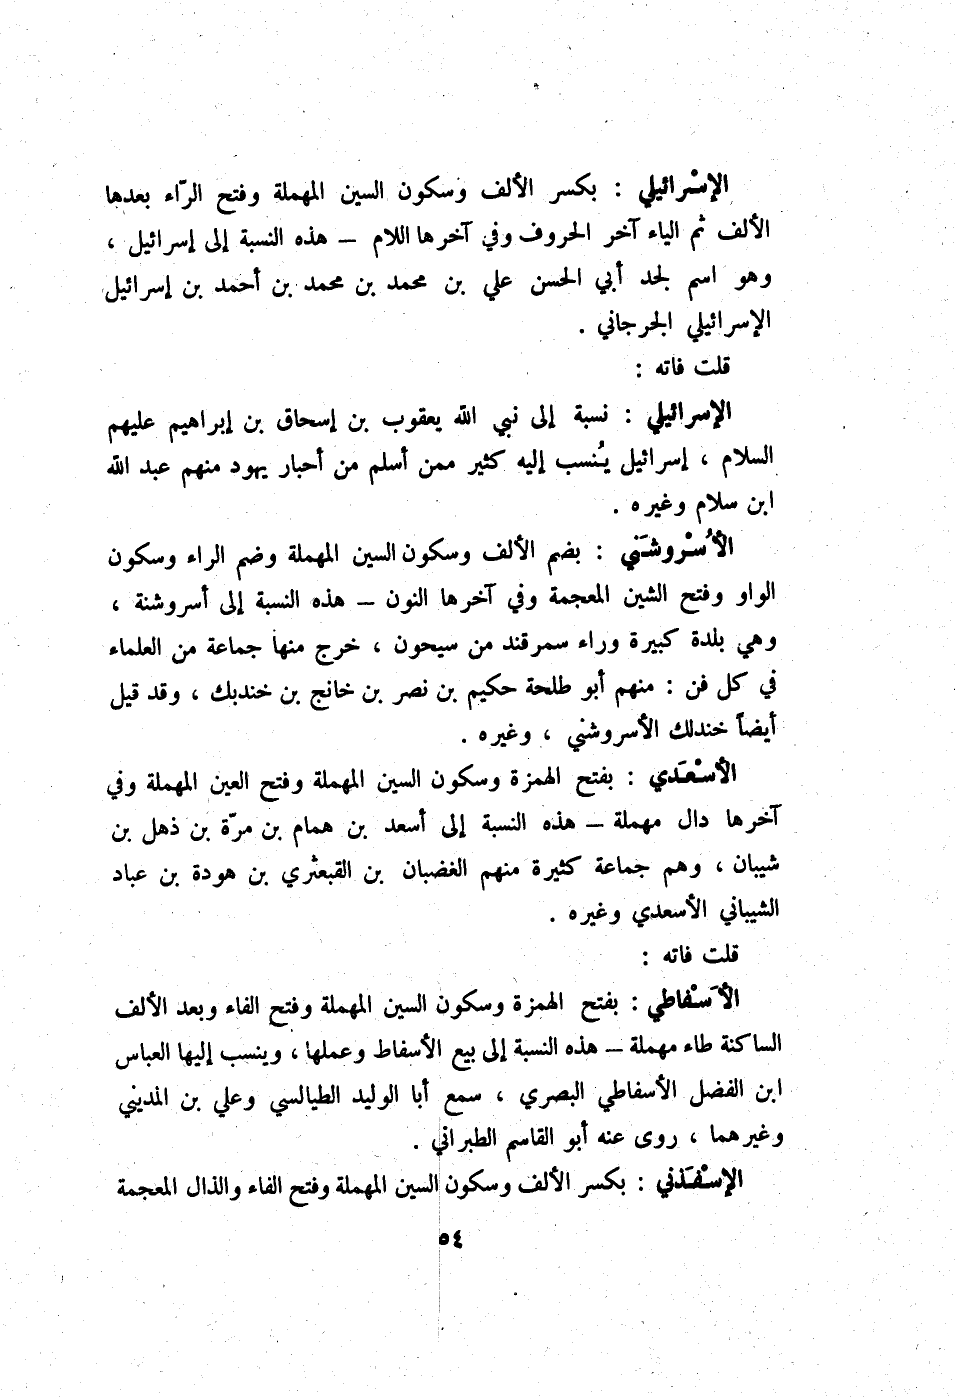 الإسْرائيلي : بكسر الألف وسكون السين المهملة وفتح الرّاء بعدها
الألف ثم الياء آخر الحروف وفي آخرها اللام – هذه النسبة إلى إسرائيل ،
وهو اسم لجد أبي الحسن علي بن محمد بن محمد بن أحمد بن إسرائيل
الإسرائيلي الجرجاني .
قلت فاته :
الإسرائيلي : نسبة إلى نبي الله يعقوب بن إسحاق بن إبراهيم عليهم
السلام ، إسرائيل يُنسب إليه كثير ممن أسلم من أحبار يهود منهم عبد الله
ابن سلام وغيره .
الأُسْروشَني : بضم الألف وسكون السين المهملة وضم الراء وسكون
الواو وفتح الشين المعجمة وفي آخرها النون – هذه النسبة إلى أسروشنة ،
وهي بلدة كبيرة وراء سمرقند من سيحون ، خرج منها جماعة من العلماء
في كل فن : منهم أبو طلحة حكيم بن نصر بن خانج بن خندبك ، وقد قيل
أيضاً خندلك الأسروشني ، وغيره .
الأسْعَدي : بفتح الهمزة وسكون السين المهملة وفتح العين المهملة وفي
آخرها دال مهملة – هذه النسبة إلى أسعد بن همام بن مرّة بن ذهل بن
شيبان ، وهم جماعة كثيرة منهم الغضبان بن القبعثْري بن هودة بن عباد
الشيباني الأسعدي وغيره .
قلت فاته :
الأَسْفاطي : بفتح الهمزة وسكون السين المهملة وفتح الفاء وبعد الألف
الساكنة طاء مهملة – هذه النسبة إلى بيع الأسفاط وعملها ، وينسب إليها العباس
ابن الفضل الأسفاطي البصري ، سمع أبا الوليد الطيالسي وعلي بن المديني
وغيرهما ، روى عنه أبو القاسم الطبراني .
الإسْفَذني : بكسر الألف وسكون السين المهملة وفتح الفاء والذال المعجمة
٥٤